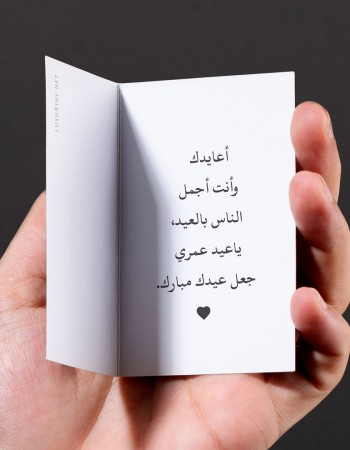 LUXURYAY.NET
أعايدك
وأنت أجمل
الناس بالعيد،
ياعيد عمري
جعل عيدك مبارك.